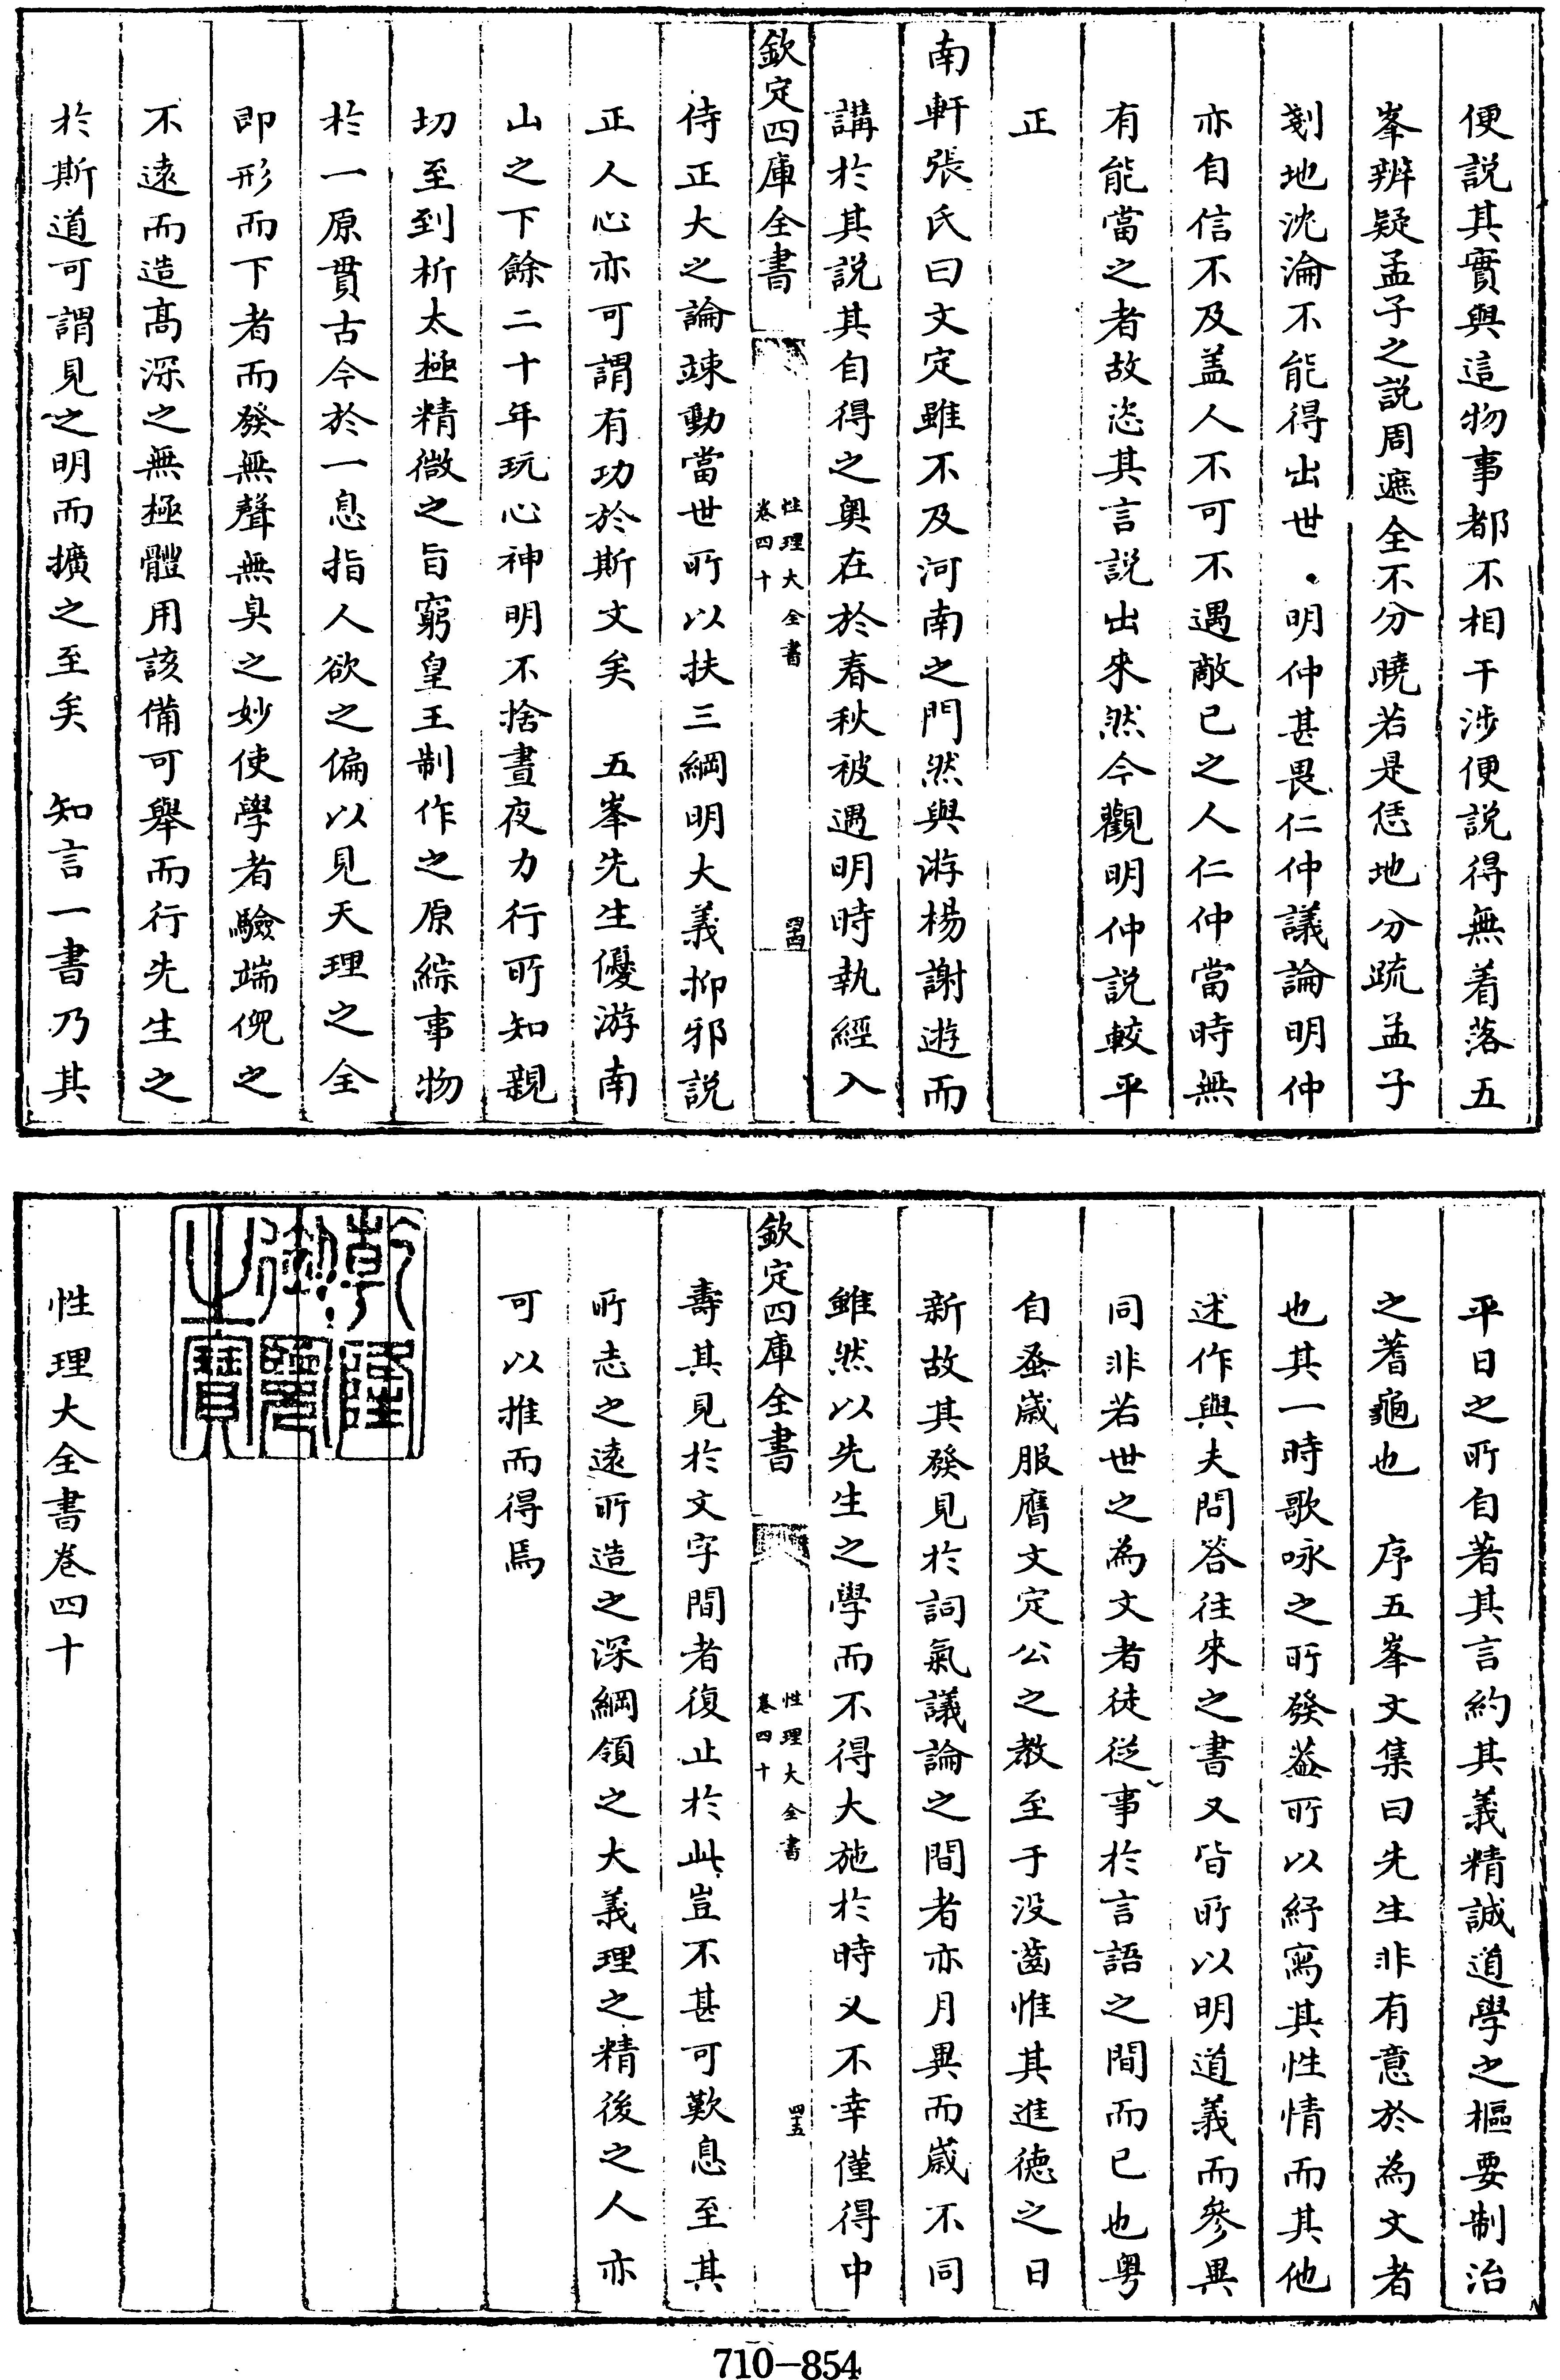 便説其實與這物事都不相干涉便説得無着落五
峯辨疑孟子之説周遮全不分曉若是恁地分疏孟子
剗地沈淪不能得出世 明仲甚畏仁仲議論明仲
亦自信不及盖人不可不遇敵已之人仁仲當時無
有能當之者故恣其言説出來然今觀明仲説較平
正
南軒張氏曰文定雖不及河南之門然與游楊謝遊而
講於其説其自得之奥在於春秋被遇明時執經入
欽定四庫全書
性理大全書
卷四十
四四
侍正大之論竦動當世所以扶三綱明大義抑邪説
正人心亦可謂有功於斯文矣 五峯先生優游南
山之下餘二十年玩心神明不捨晝夜力行所知親
切至到析太極精微之旨窮皇王制作之原綜事物
於一原貫古今於一息指人欲之偏以見天理之全
即形而下者而發無聲無臭之妙使學者驗端倪之
不遠而造髙深之無極體用該備可舉而行先生之
於斯道可謂見之明而擴之至矣 知言一書乃其
平日之所自著其言約其義精誠道學之樞要制治
之蓍龜也 序五峯文集曰先生非有意於為文者
也其一時歌咏之所發葢所以紓寫其性情而其他
述作與夫問答往來之書又皆所以明道義而參異
同非若世之為文者徒從事於言語之間而已也粤
自蚤歲服膺文定公之教至于没齒惟其進德之日
新故其發見於詞氣議論之間者亦月異而歲不同
雖然以先生之學而不得大施於時又不幸僅得中
欽定四庫全書
性理大全書
卷四十
四五
壽其見於文字間者復止於此豈不甚可歎息至其
所志之遠所造之深綱領之大義理之精後之人亦
可以推而得焉
乾隆御覽之寶
性理大全書卷四十
710-854